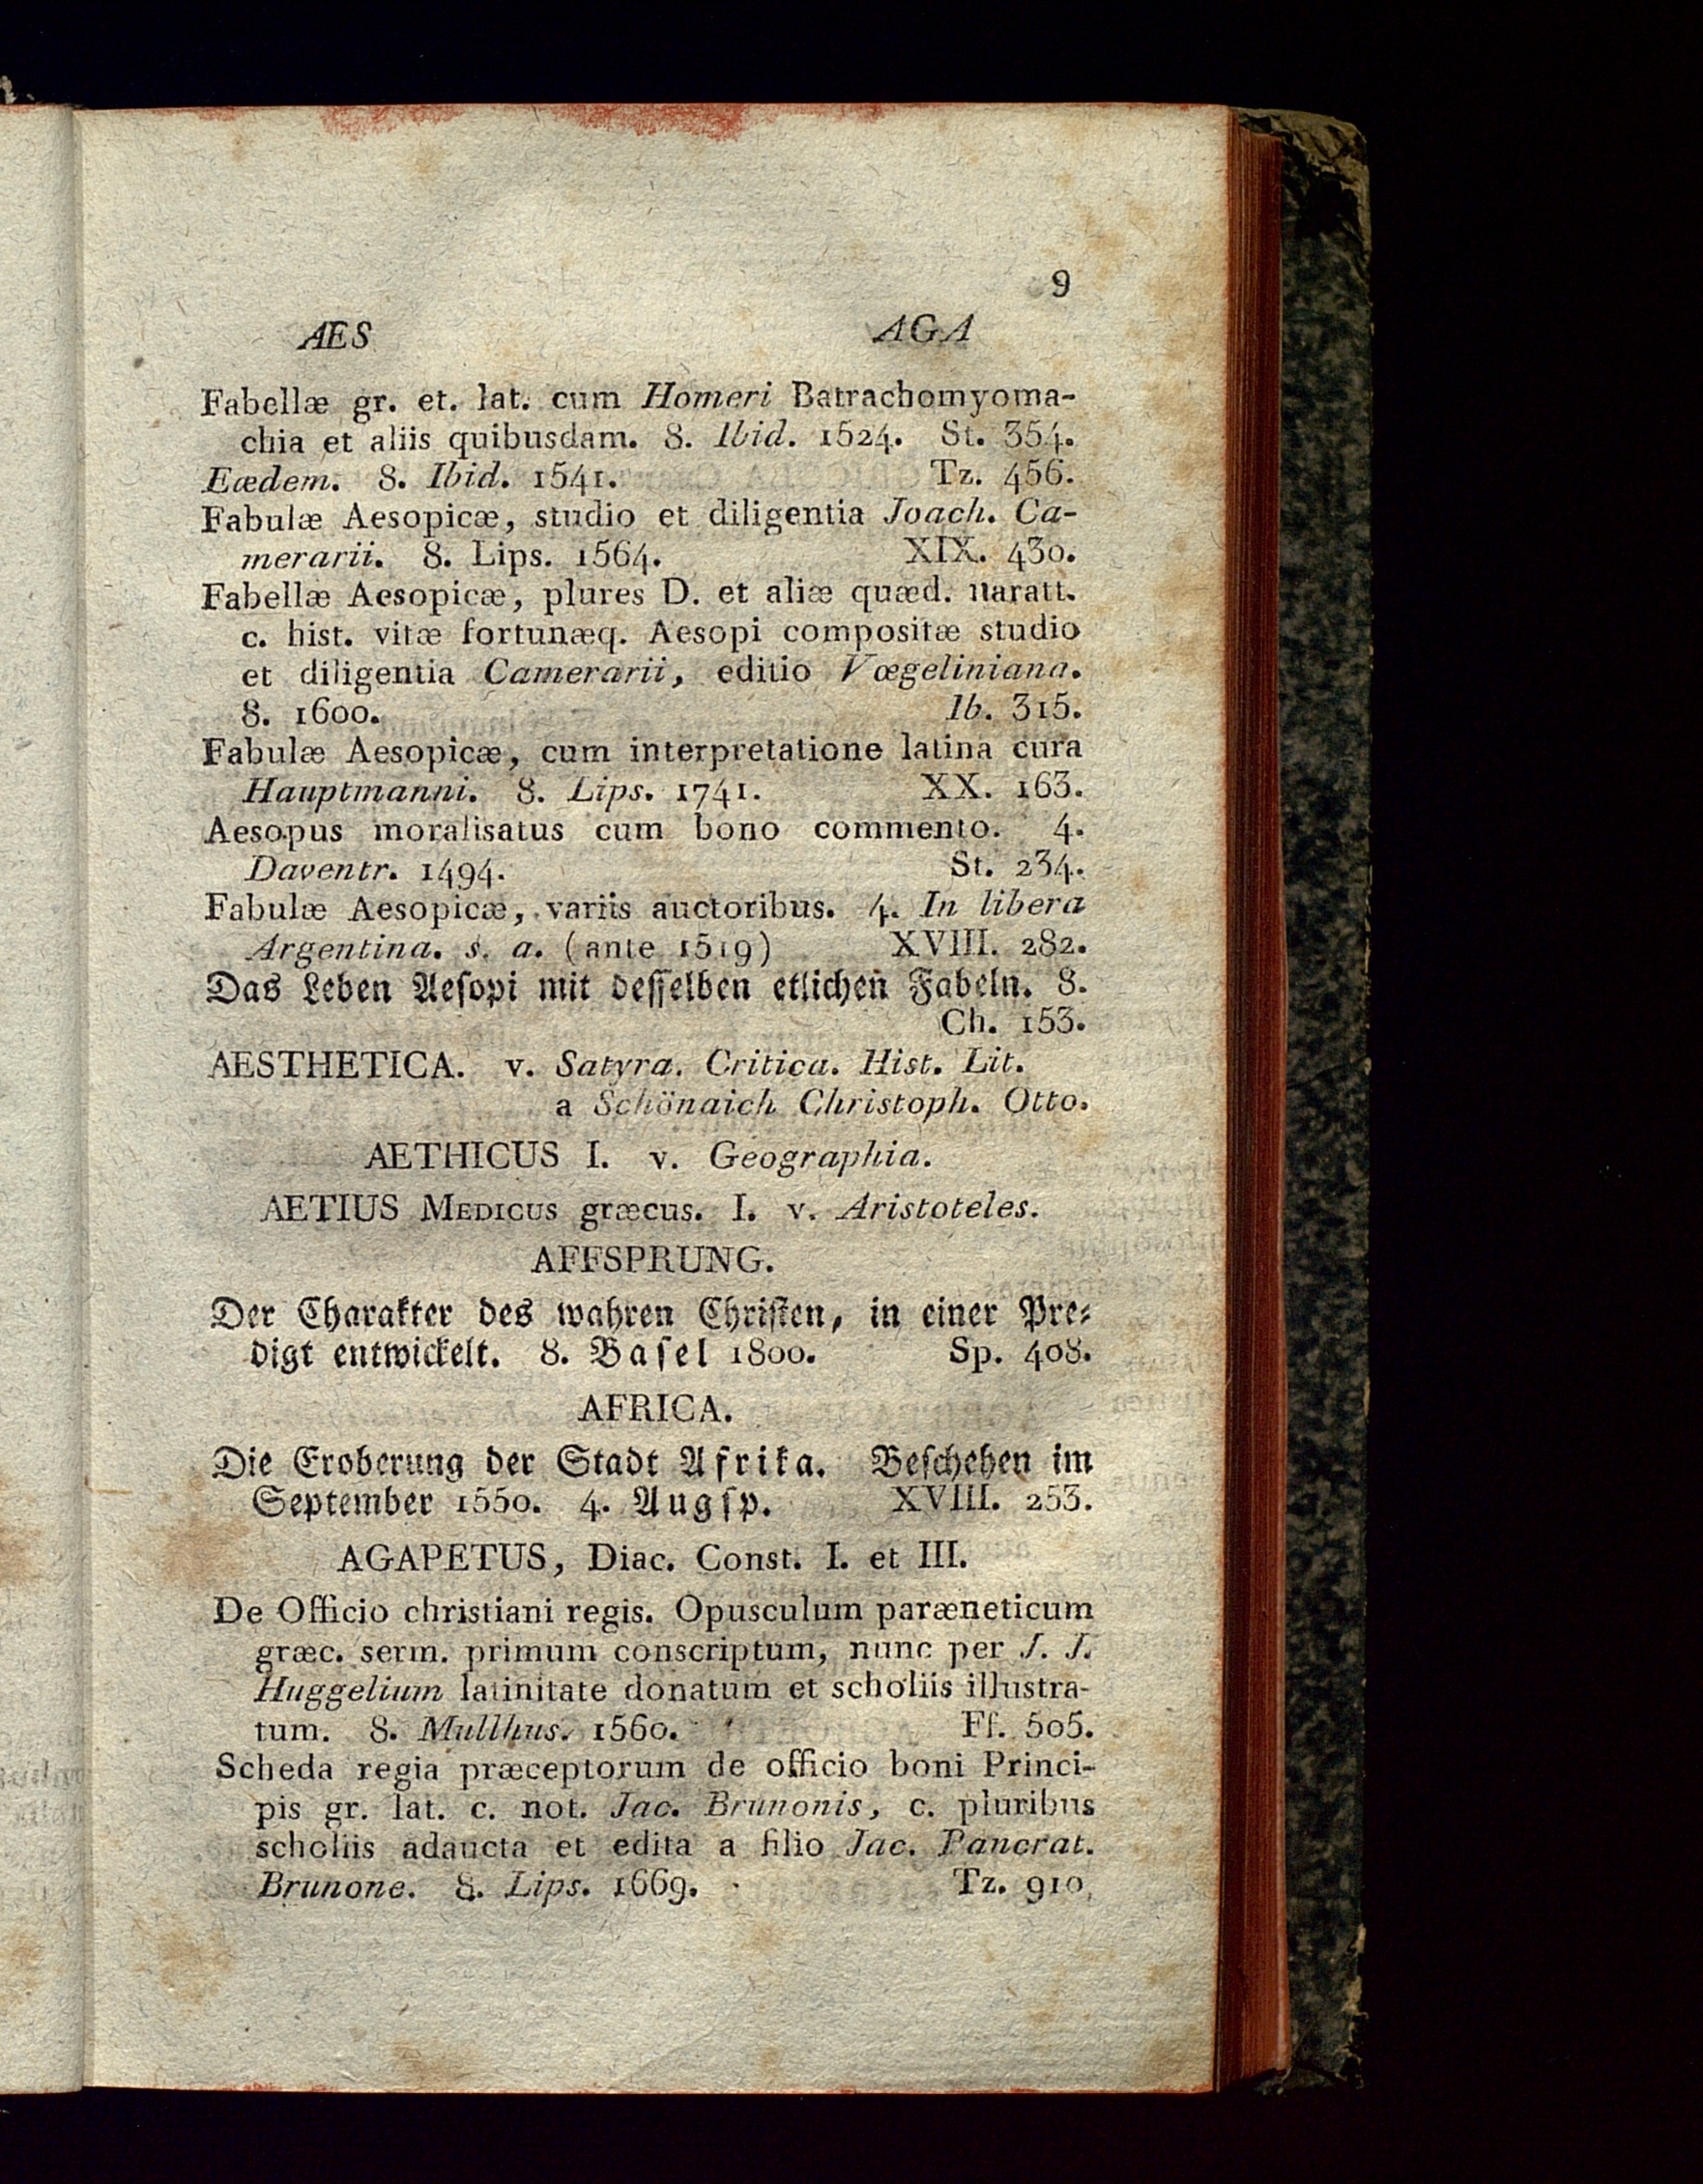 9
AES AGA
Fabellæ gr. et. lat. cum Homeri Batrachomyoma-
chia et aliis quibusdam. 8. Ibid. 1524. St. 354.
Eædem. 8. Ibid. 1541. Tz. 456.
Fabulæ Aesopicæ, studio et diligentia Joach. Ca-
merarii. 8. Lips. 1564. XIX. 430.
Fabellæ Aesopicæ, plures D. et aliæ quæd. naratt.
c. hist. vitæ fortunæq. Aesopi compositæ studio
et diligentia Camerarii, editio Vœgeliniana.
8. 1600. Ib. 315.
Fabulæ Aesopicæ, cum interpretatione latina cura
Hauptmanni. 8. Lips. 1741. XX. 163.
Aesopus moralisatus cum bono commento. 4.
Daventr. 1494. St. 234.
Fabulæ Aesopicæ, variis auctoribus. 4. In libera
Argentina. s. a. (ante 1519) XVIII. 282.
Das Leben Aeſopi mit deſſelben etlichen Fabeln. 8.
Ch. 153.
AESTHETICA. v. Satyra. Critica. Hist. Lit.
a Schönaich Christoph. Otto.
AETHICUS I. v. Geographia.
AETIUS MEDICUS græcus. I. v. Aristoteles.
AFFSPRUNG.
Der Charakter des wahren Chriſten, in einer Pre-
digt entwickelt. 8. Baſel 1800. Sp. 408.
AFRICA.
Die Eroberung der Stadt Afrika. Beſchehen im
September 1550. 4. Augſp. XVIII. 253.
AGAPETUS, Diac. Const. I. et III.
De Officio christiani regis. Opusculum paræneticum
græc. serm. primum conscriptum, nunc per J. J.
Huggelium latinitate donatum et scholiis illustra-
tum. 8. Mullhus. 1560. Ff. 505.
Scheda regia præceptorum de officio boni Princi-
pis gr. lat. c. not. Jac. Brunonis, c. pluribus
scholiis adaucta et edita a filio Jac. Pancrat.
Brunone. 8. Lips. 1669. Tz. 910.